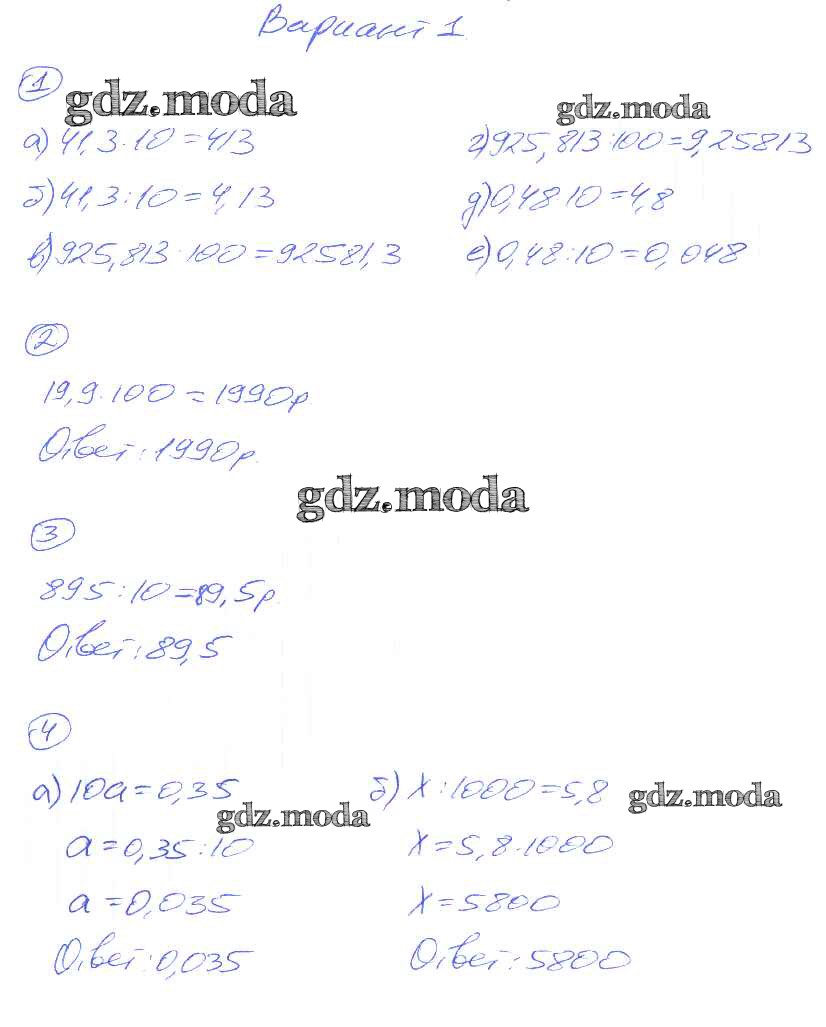 Вариант 1
1
gdz.moda
gdz.moda
а) 41,3·10=413
г) 925,813:100=9,25813
б) 41,3:10=4,13
д) 0,48·10=4,8
в) 925,813·100=92581,3
е) 0,48:10=0,048
2
19,9·100=1990р
Ответ: 1990р.
gdz.moda
3
895:10=89,5р.
Ответ: 89,5
4
а) 10a=0,35
б) x:1000=5,8
gdz.moda
gdz.moda
a=0,35:10
x=5,8·1000
a=0,035
x=5800
Ответ: 0,035
Ответ: 5800